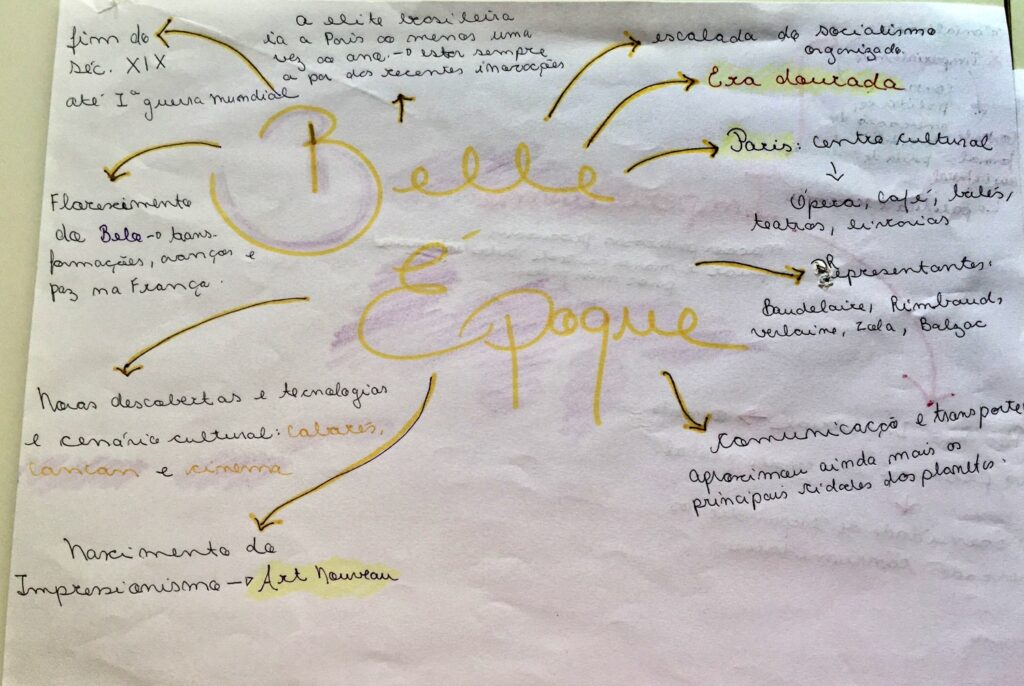 fim do
séc. XIX
até Iª guerra mundial
a elite brasileira
ia a Paris ao menos uma
vez ao ano. → estar sempre
a par das recentes inovações
escalada do socialismo
organizado.
Era dourada
Paris: centro cultural
↓
Ópera, Café, balés,
teatros, livrarias
Belle
Época
Florescimento
da Bela → trans-
formações, avanços e
paz na França.
Representantes:
Baudelaire, Rimbaud,
verlaine, Zola, Balzac
Novas descobertas e tecnologias
e cenário cultural: Cabarés,
Cancan e cinema
comunicação e transporte
aproximou ainda mais as
principais cidades dos planetas.
Nascimento do
Impressionismo → Art Nouveau